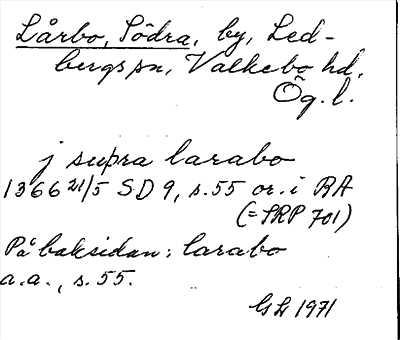 Lårbo, Södra, by, Led-
bergs sn, Valkebo hd,
Ög. l.
j supra larabo
1366 21/5 SD 9, s.55 or. i RA
(=SRP 701)
På baksidan: larabo
a.a., s. 55.
1971